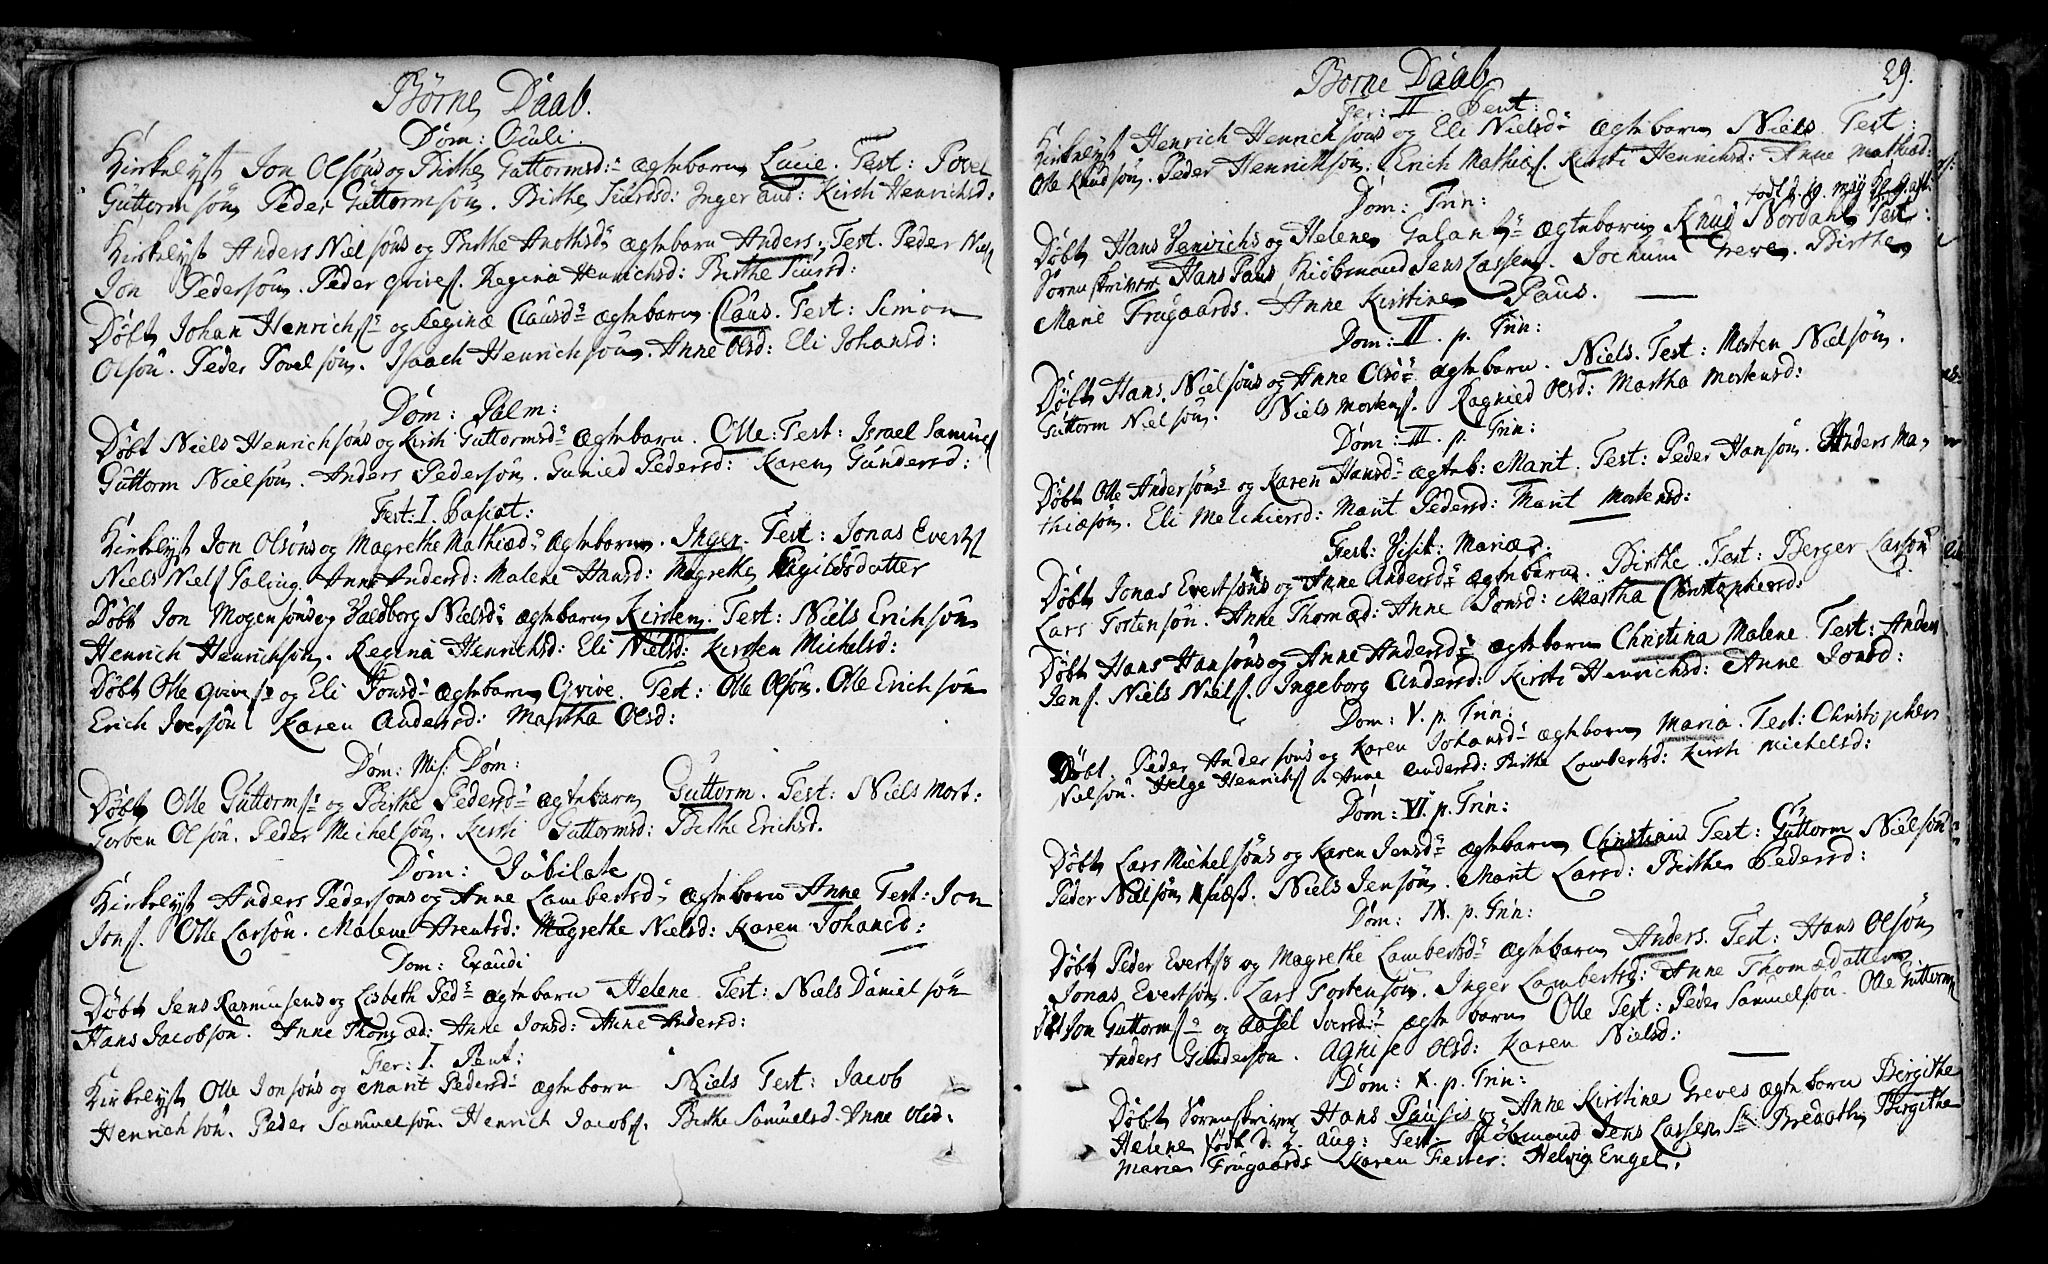 Børne Daab.
Dom: Oculi.
Kirkelyst Jon Olsøns og Birthe Guttormsd: ægtebarn Lucie. Test: Povel
Guttormsøn Peder Guttormsøn. Birthe Siursd: Inger And: Kirsti Henrichsd:
Kirkelyst Anders Nielsøns og Birthe ægtebarn Anders. Test. Peder Niels
Jon Pedersøn. Peder Gvives. Regina Henrichsd: Birthe Siursd:
Døbt Johan Henrichs: og Reginæ Clausd: ægtebarn. Claus. Test: Simon
Olsøn. Peder Povelsøn. Isaach Henrichsøn. Anne Olsd: Eli Johansd:
Dom: Palm:
Døbt Niels Henrichsøns og Kirsti Guttormsd: ægtebarn. Olle: Test: Israel Samuels
Guttorm Nielsøn. Anders Pedersøn. Gunied Pedersd: Karen Gundersd:
Fest: I. Pascat:
Kirkelyst Jon Olsøns og Magrethe Mathiæd: ægtebarn. Inger. Test: Jonas Everts
Niels Niels Taling. Anne Andersd: Malene Hansd: Magrethe
Døbt Jon Mogensøns og Valdborg Nielsd: ægtebarn Kirsten. Test: Niels Erichsøn
Henrich Henrichsøn. Regina Henrichsd: Eli Nielsd: Kirsten Michelsd:
Døbt Olle Gvives: og Eli Jonsd: ægtebarn Gvive. Test: Olle Olsøn. Olle Erichsøn
Erich Iversøn Karen Andersd: Martha Olsd:
Dom: Mis: Dom:
Døbt Olle Guttorms: og Birthe Pedersd: ægtebarn Guttorm. Test: Niels Mort:
Torben Olsøn. Peder Michelsøn. Kirsti Guttormsd: Birthe Erichsd.
Dom: Jubilate
Kirkelyst Anders Pedersøns og Anne Lambertsd: ægtebarn Anne Test: Jon
Jons. Olle Larsøn. Malene Arentsd: Magrethe Nielsd: Karen Johansd:
Dom: Exaudi
Døbt Jens Rasmusens og Lisbeth Ped: ægtebarn Helene Test: Niels Danielsøn
Hans Jacobsøn. Anne Thomæd: Anne Jonsd: Anne Andersd:
Fer: I. Pent:
Kirkelyst Olle Jonsøns og Marit Pedersd: ægtebarn Niels Test: Jacob
Henrichsøn. Peder Samuelsøn. Henrich Jacobs. Birthe Samuelsd. Anne Olsd:
Børne Daab
29.
Fer: II. Pent:
Kirkelyst Henrich Henrichsøns og Eli Nielsd: ægtebarn Niels Test:
Olle Knudsøn. Peder Henrichsøn. Erich Mathiæs. Kirsti Henrichsd: Anne Mathiæd:
Dom: Trin:
Døbt Hans Henrichs og Helene ægtebarn Knud Nordahl Test:
Sorenskriver Hans Paus Kiøbmand Jens Lassen. Jochum Greve. Birthe
Marie Frugaards. Anne Kirstine Paus.
Dom: II. p. Trin:
Døbt Hans Nielsøns og Anne Olsd: ægtebarn. Niels. Test: Morten Nielsøn.
Guttorm Nielsøn. Niels Mortens. Ragnied Olsd: Martha Mortensd:
Dom: III. p. Trin:
Døbt Olle Andersøns og Karen Hansd: ægteb: Marit. Test: Peder Hansøn. Anders Ma-
thiæsøn. Eli Melchiersd: Marit Pedersd: Marit Mortensd:
Fest: Visit: Mariæ.
Døbt Jonas Evertsøns og Anne Andersd: ægtebarn. Birthe. Test: Berger Larsøn
Lars Tostensøn. Anne Thomæd: Anne Jonsd: Martha Christophersd:
Døbt Hans Hansøns og Anne Andersd: ægtebarn Christina Malene Test: Anders
Jens. Niels Niels. Ingeborg Andersd: Kirsti Henrichsd: Anne Jonsd:
Dom: V. p. Trin:
Døbt Peder Andersøns og Karen Johansd: ægtebarn Maria. Test: Christopher
Nielsøn. Helge Henrichs. Anne Andersd: Birthe Lambertsd: Kirsti Michelsd:
Dom: VI. p. Trin:
Døbt Lars Michelsøns og Karen Jensd: ægtebarn Christian Test: Guttorm Nielsøn
Peder Nielsøn Niels Jensøn. Marit Larsd: Birthe Pedersd:
Dom: IX. p. Trin:
Døbt Peder Everts: og Magrethe Lambertsd: ægtebarn Anders. Test: Hans Olsøn
Jonas Evertsøn. Lars Tostensøn. Inger Lambertsd: Anne Thomædatter
Døbt Jon Guttorms: og Iversd: ægtebarn Olle Test: Peder Samuelsøn. Olle Guttorms
Anders Gundersøn. Olsd: Karen Nielsd:
Dom: X. p. Trin:
Døbt Sorenskriver Hans Pausis og Anne Kirstine Greves ægtebarn Birgithe
Helene født d. 2. Aug: Test: Kiøbmand Jens Lassen Birgithe
Maria Frugaards Karen Fester: Helvig Engel.